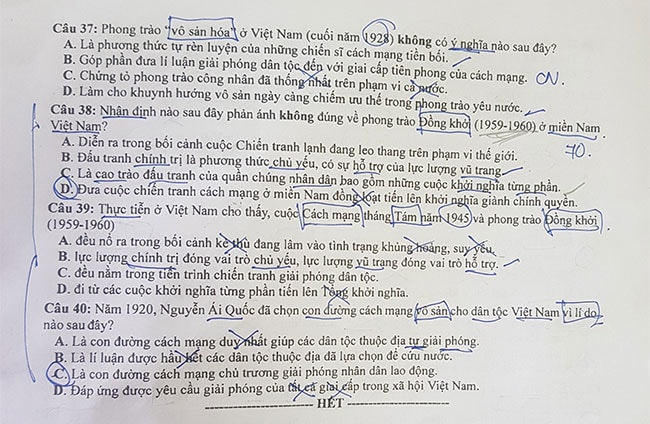 Câu 37: Phong trào "vô sản hóa" ở Việt Nam (cuối năm 1928) không có ý nghĩa nào sau đây?
A. Là phương thức tự rèn luyện của những chiến sĩ cách mạng tiền bối.
B. Góp phần đưa lí luận giải phóng dân tộc đến với giai cấp tiên phong của cách mạng. CN.
C. Chứng tỏ phong trào công nhân đã thống nhất trên phạm vi cả nước.
D. Làm cho khuynh hướng vô sản ngày càng chiếm ưu thế trong phong trào yêu nước.
Câu 38: Nhận định nào sau đây phản ánh không đúng về phong trào Đồng khởi (1959-1960) ở miền Nam
Việt Nam?
A. Diễn ra trong bối cảnh cuộc Chiến tranh lạnh đang leo thang trên phạm vi thế giới. 70.
B. Đấu tranh chính trị là phương thức chủ yếu, có sự hỗ trợ của lực lượng vũ trang.
C. Là cao trào đấu tranh của quần chúng nhân dân bao gồm những cuộc khởi nghĩa từng phần.
D. Đưa cuộc chiến tranh cách mạng ở miền Nam đồng loạt tiến lên khởi nghĩa giành chính quyền.
Câu 39: Thực tiễn ở Việt Nam cho thấy, cuộc Cách mạng tháng Tám năm 1945 và phong trào Đồng khởi
(1959-1960)
A. đều nổ ra trong bối cảnh kẻ thù đang lâm vào tình trạng khủng hoảng, suy yếu.
B. lực lượng chính trị đóng vai trò chủ yếu, lực lượng vũ trang đóng vai trò hỗ trợ.
C. đều nằm trong tiến trình chiến tranh giải phóng dân tộc.
D. đi từ các cuộc khởi nghĩa từng phần tiến lên Tổng khởi nghĩa.
Câu 40: Năm 1920, Nguyễn Ái Quốc đã chọn con đường cách mạng vô sản cho dân tộc Việt Nam vì lí do
nào sau đây?
A. Là con đường cách mạng duy nhất giúp các dân tộc thuộc địa tự giải phóng.
B. Là lí luận được hầu hết các dân tộc thuộc địa đã lựa chọn để cứu nước.
C. Là con đường cách mạng chủ trương giải phóng nhân dân lao động.
D. Đáp ứng được yêu cầu giải phóng của tất cả giai cấp trong xã hội Việt Nam.
HẾT